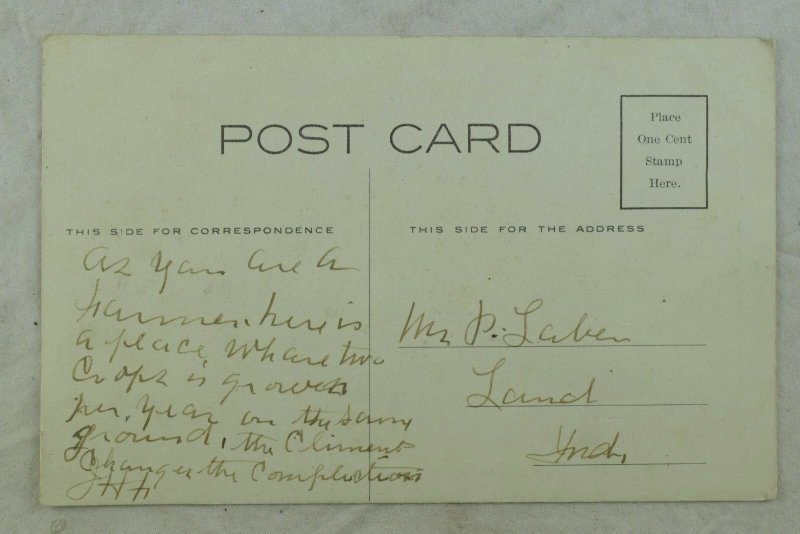 POST CARD
Place
One Cent
Stamp
Here.
THIS SIDE FOR CORRESPONDENCE
THIS SIDE FOR THE ADDRESS
As you are a
farmer, here is
a pleace, Whare two
Crops is grown
per, year on the same
ground, the Climent
Changes the Complections
Mr P. Laben
Laud
Ind,